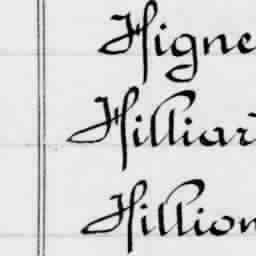 Higne
Hilliar
Hillion